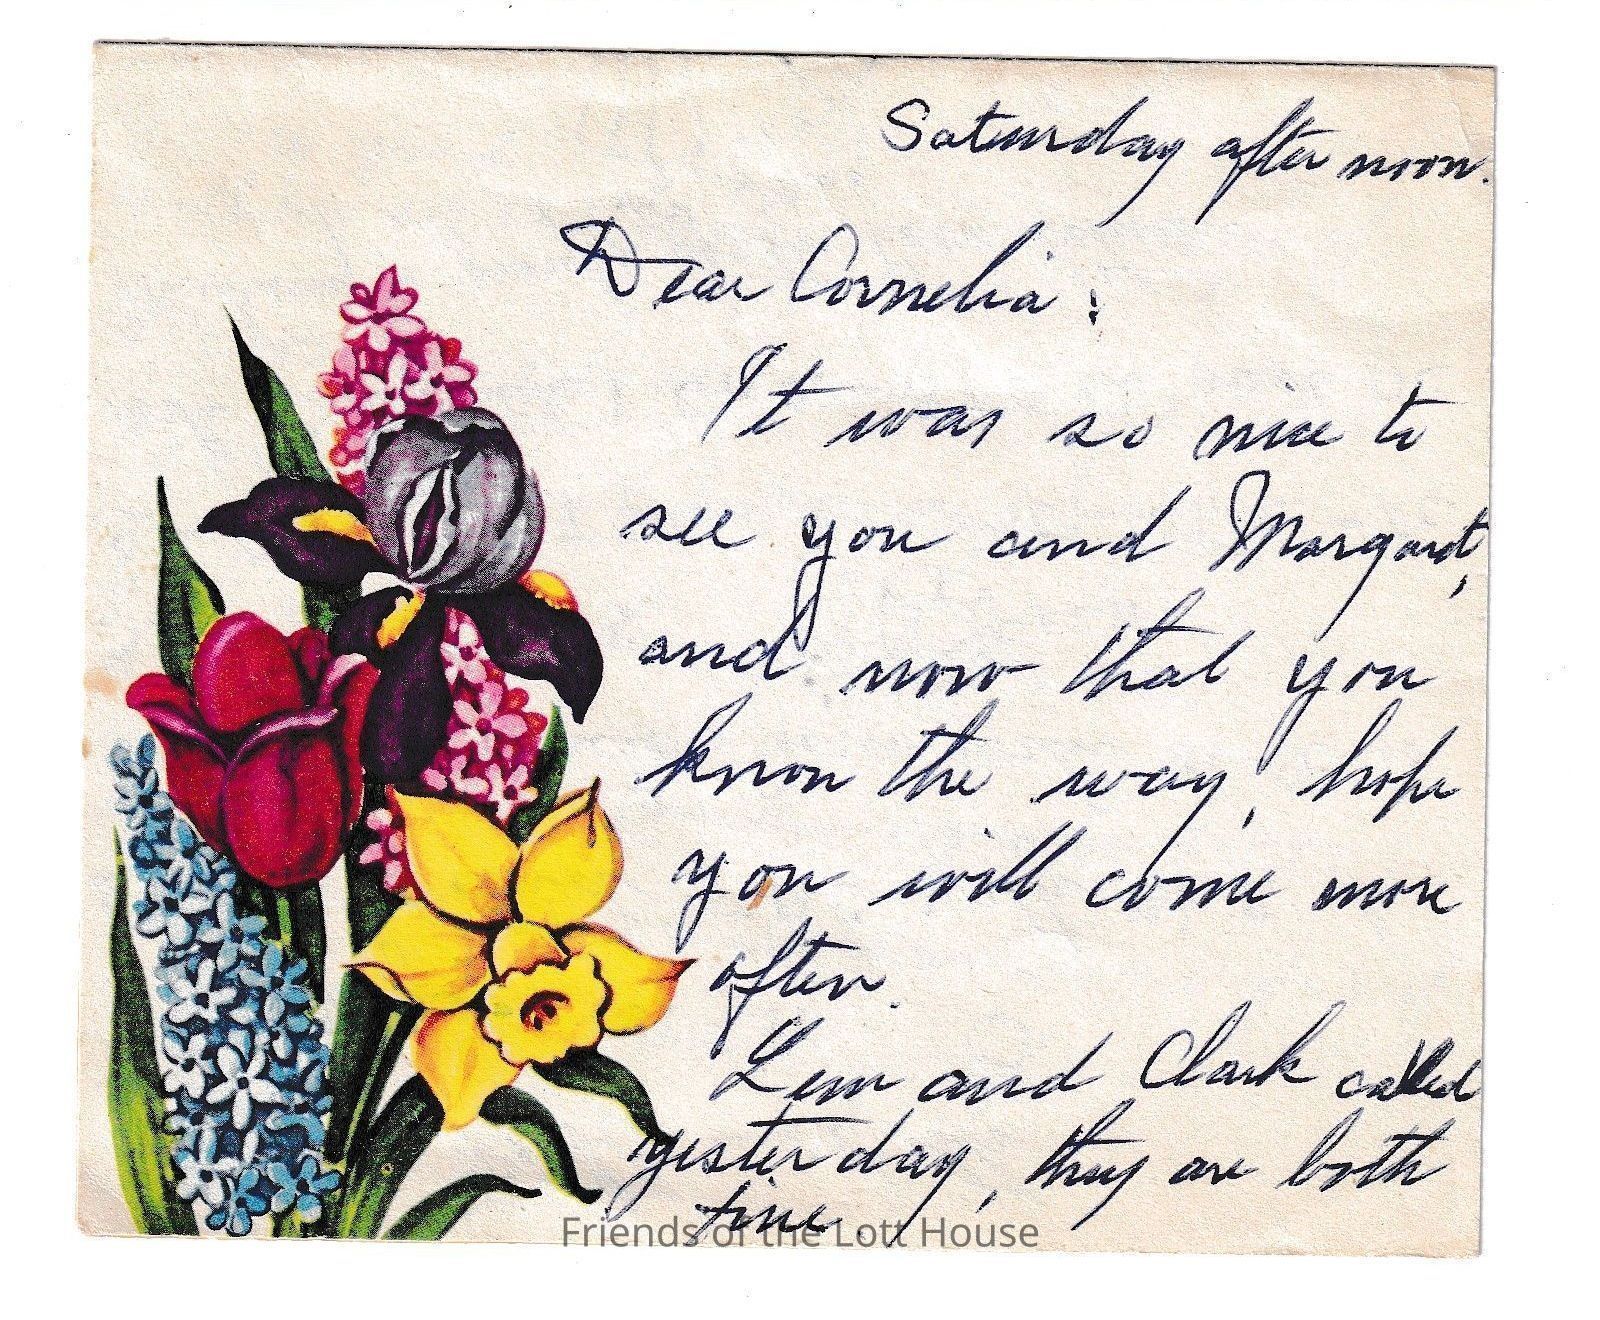 Saturday after noon.
Dear Cornelia:
It was so nice to
see you and Margaret,
and now that you
know the way, hope
you will come more
often.
Lem and Clark called
yesterday, they are both
fine.
Friends of the Lott House